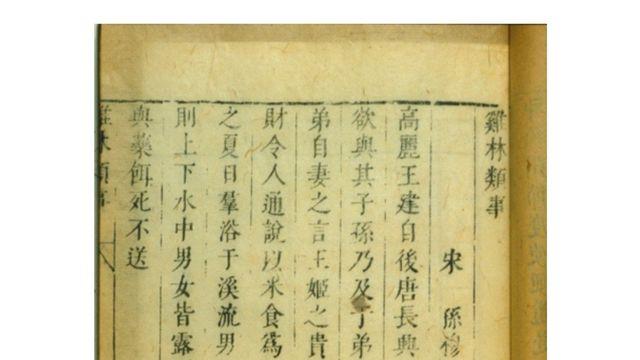 雞林類事
宋 孫穆
高麗王建自後唐長興
欲與其子孫乃及于弟
弟自妻之言王姬之貴
財令人通說以米食爲
之夏日羣浴于溪流男
則上下水中男女皆露
與藥餌死不送
雞林類事